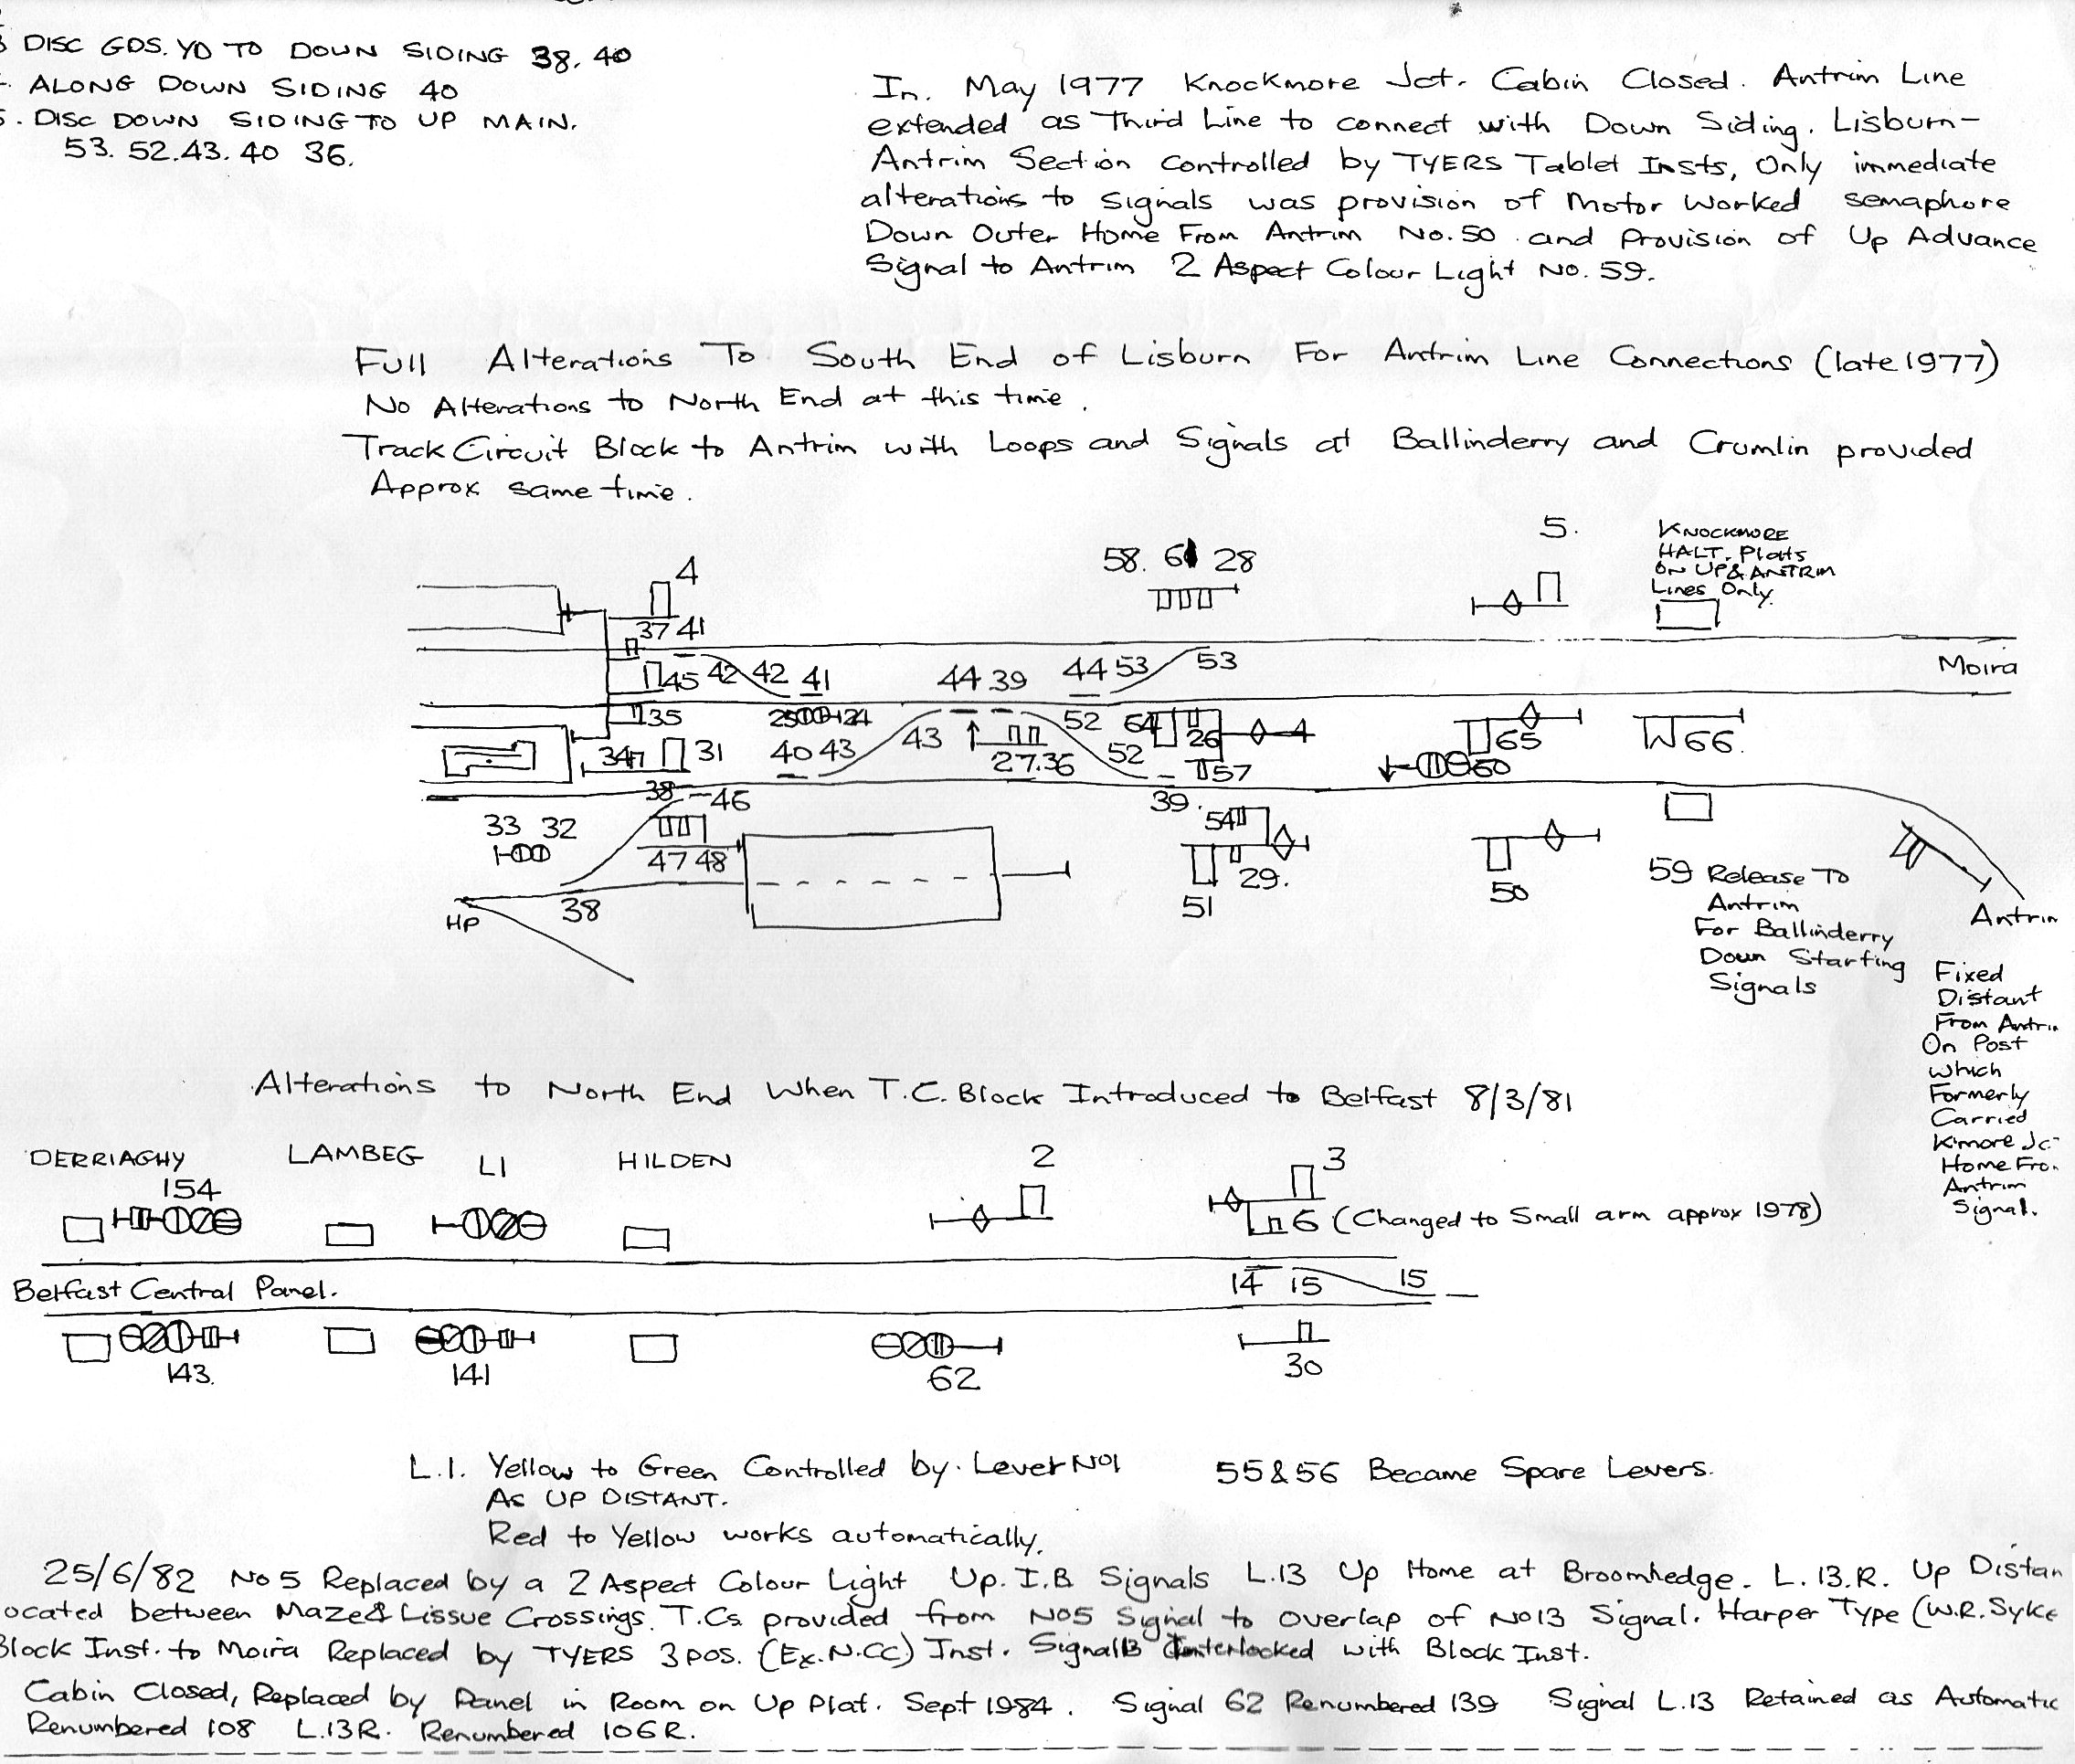 DISC GDS. YD TO DOWN SIDING 38. 40
ALONG DOWN SIDING 40
DISC DOWN SIDING TO UP MAIN.
53. 52. 43. 40 36.
In. May 1977 Knockmore Jct. Cabin Closed. Antrim Line
extended as Third Line to connect with Down Siding. Lisburn-
Antrim Section controlled by TYERS Tablet Insts, Only immediate
alterations to signals was provision of Motor Worked semaphore
Down Outer Home From Antrim No. 50 and Provision of Up Advance
Signal to Antrim 2 Aspect Colour Light No. 59.
Full Alterations To South End of Lisburn For Antrim Line Connections (late 1977)
No Alterations to North End at this time.
Track Circuit Block to Antrim with Loops and Signals at Ballinderry and Crumlin provided
Approx same time.
5.
KNOCKMORE
HALT. Plats
ON UP & ANTRIM
Lines Only.
58. 61 28
4
37 41
45 42 42 41
44 39
44 53 53
Moira
35
25 24
43
52
64
26
65
66.
34 31
40 43
27.36
52
57
60
38 46
39.
33 32
54
47 48
29.
51
50
HP
38
59 Release To
Antrim
For Ballinderry
Down Starting
Signals
Antrim
Fixed
Distant
From Antrim
On Post
which
Formerly
Carried
K'more Jct
Home From
Antrim
Signal.
Alterations to North End When T.C. Block Introduced to Belfast 8/3/81
DERRIAGHY LAMBEG L1 HILDEN
154
2
3
6 (Changed to Small arm approx 1978)
14 15 15
Belfast Central Panel.
143.
141
62
30
L.1. Yellow to Green Controlled by. Lever No1
As UP DISTANT.
Red to Yellow works automatically.
55 & 56 Became Spare Levers.
25/6/82 No 5 Replaced by a 2 Aspect Colour Light Up. I.B Signals L.13 Up Home at Broomhedge. L.13.R. Up Distan
ocated between Maze & Lissue Crossings. T.Cs provided from No5 Signal to overlap of No13 Signal. Harper Type (W.R. Syke
Block Inst. to Moira Replaced by TYERS 3 pos. (Ex. N.CC) Inst. Signal 13 Interlocked with Block Inst.
Cabin Closed, Replaced by Panel in Room on Up Plat. Sept 1984. Signal 62 Renumbered 139 Signal L.13 Retained as Automatic
Renumbered 108 L.13R. Renumbered 106R.